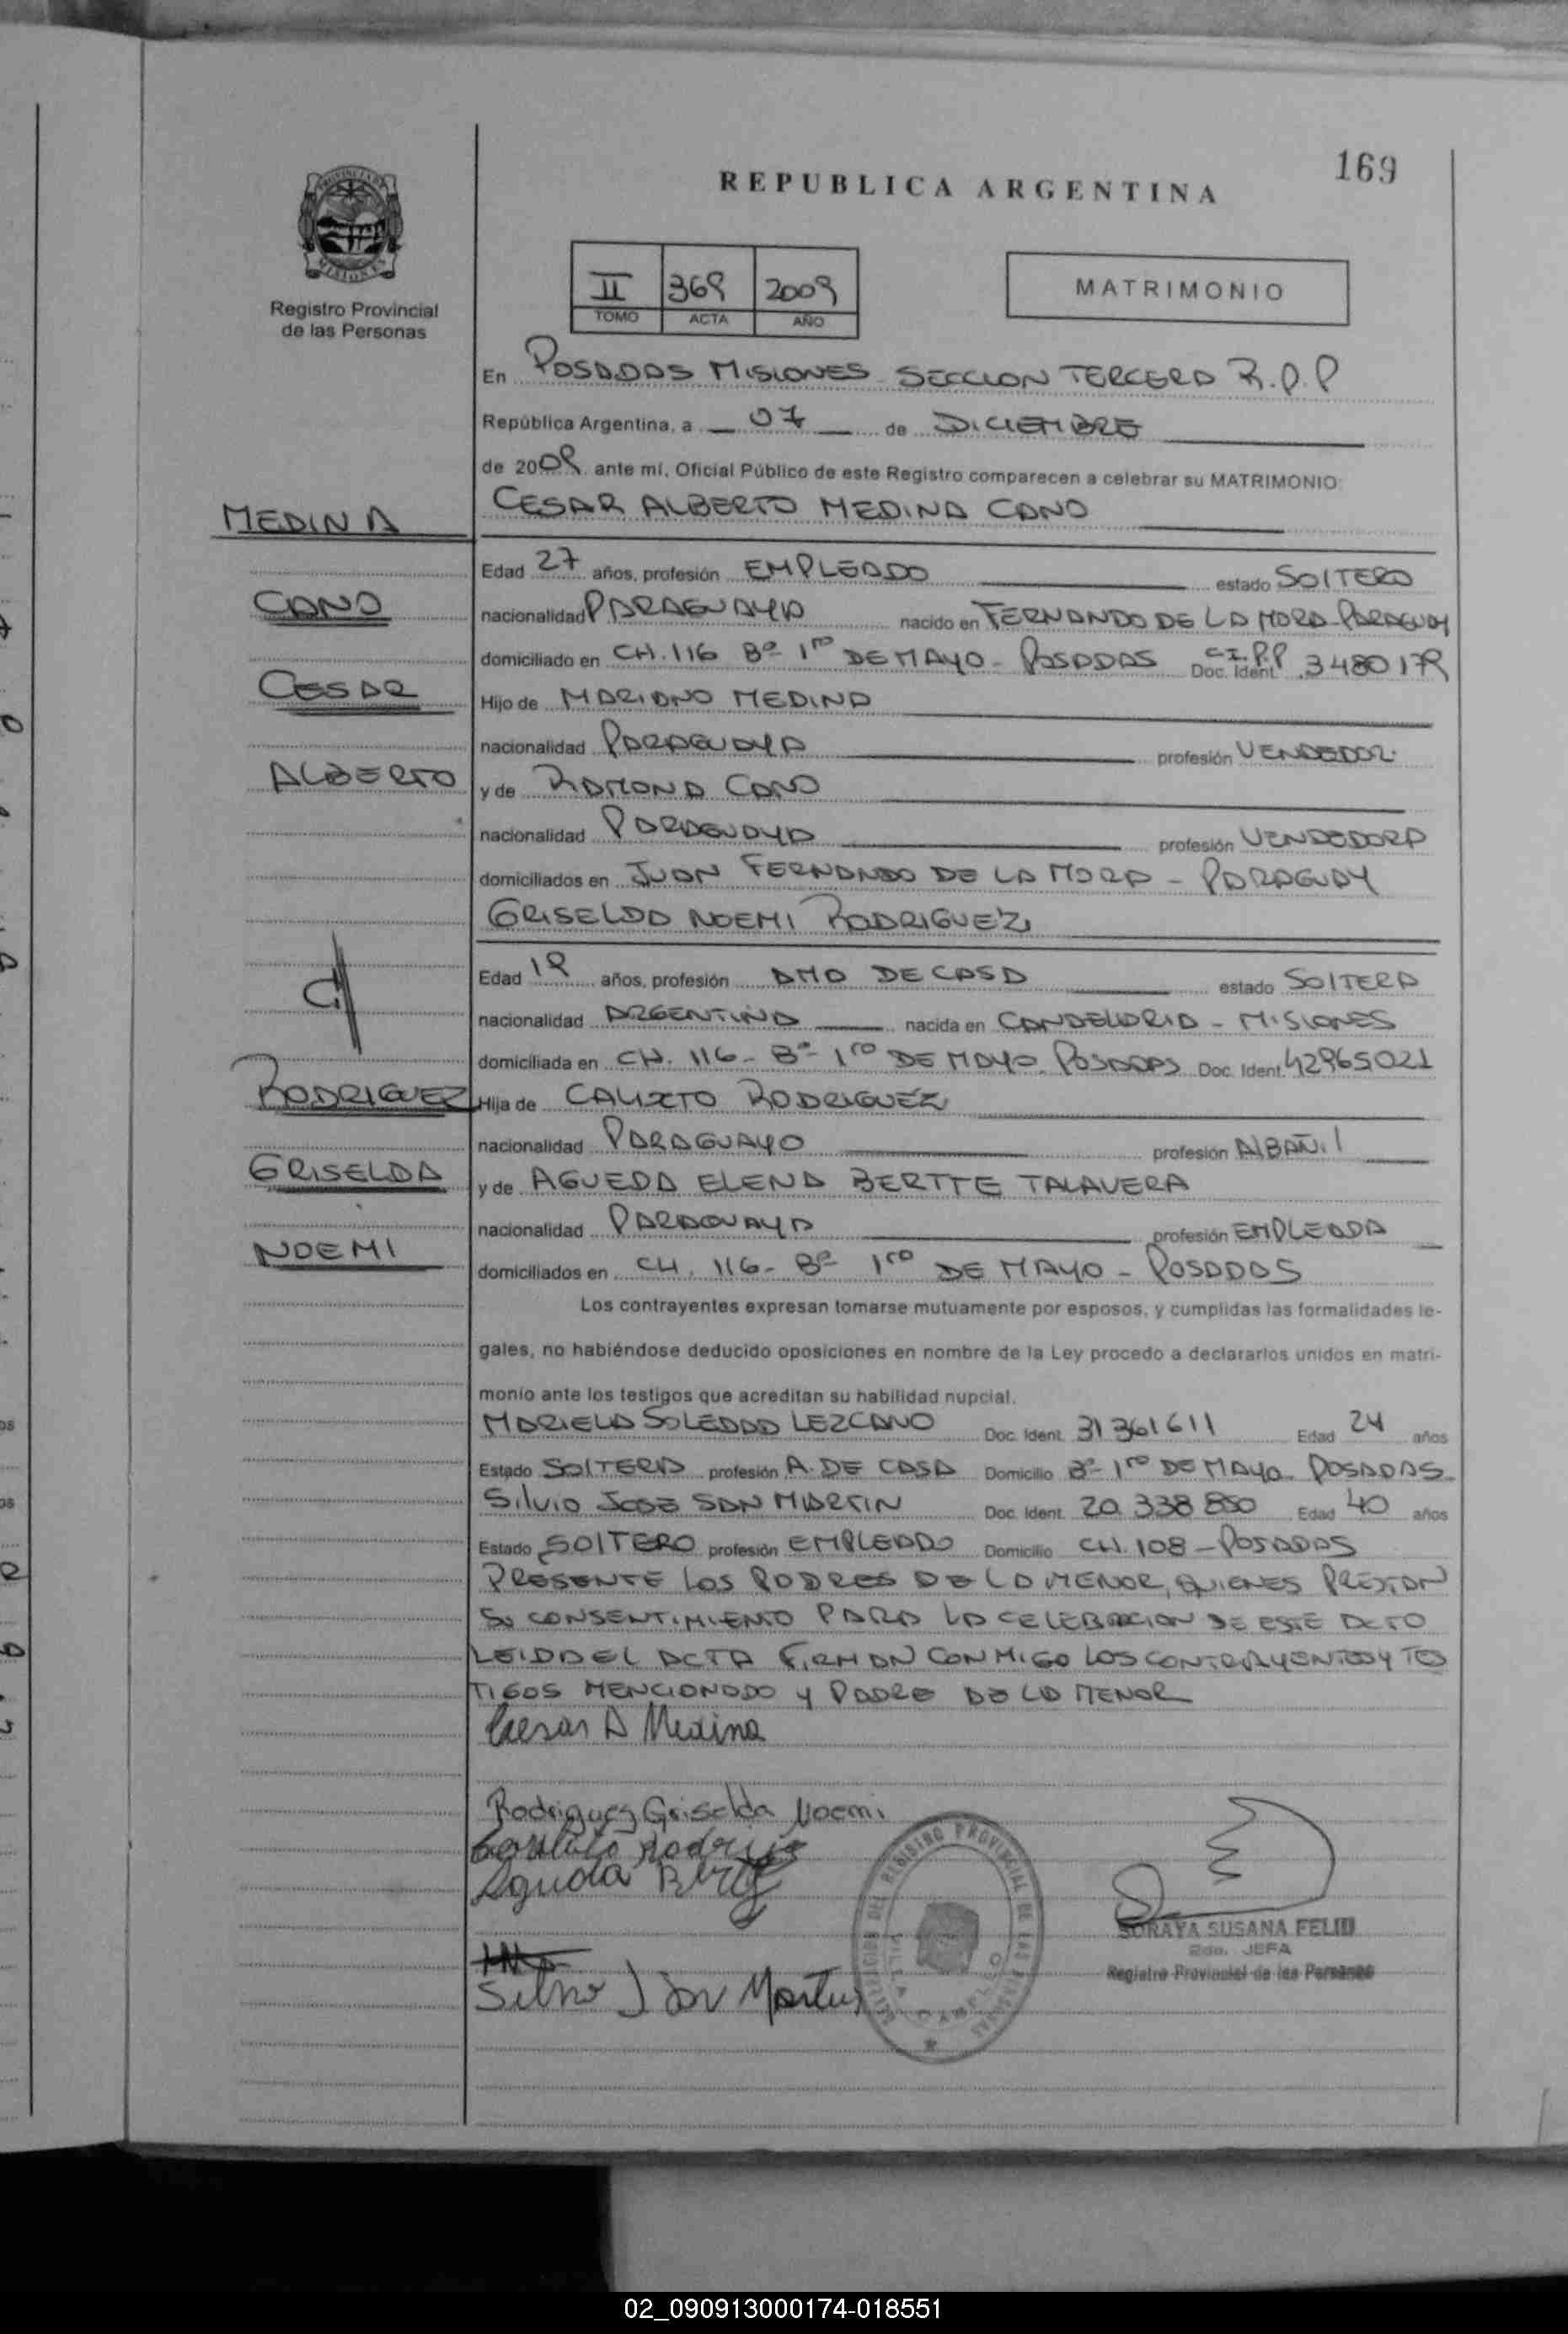 169
REPUBLICA ARGENTINA
PROVINCIA DE
MISIONES
Registro Provincial
de las Personas
II 369 2009
TOMO ACTA AÑO
MATRIMONIO
En POSADAS MISIONES SECCION TERCERA R.P.P
República Argentina, a 07 de DICIEMBRE
de 2009 ante mí, Oficial Público de este Registro comparecen a celebrar su MATRIMONIO:
MEDINA
CESAR ALBERTO MEDINA CANO
Edad 27 años, profesión EMPLEADO estado SOLTERO
CANO
nacionalidad PARAGUAYA nacido en FERNANDO DE LA MORA PARAGUAY
domiciliado en CH. 116 Bº 1ro DE MAYO - POSADAS Doc. Ident. C.I.P.P 3480179
CESAR
Hijo de MARIANO MEDINA
nacionalidad PARAGUAYA profesión VENDEDOR
ALBERTO
y de RAMONA CANO
nacionalidad PARAGUAYA profesión VENDEDORA
domiciliados en JUAN FERNANDO DE LA MORA - PARAGUAY
GRISELDA NOEMI RODRIGUEZ
Edad años, profesión AMA DE CASA estado SOLTERA
C/
nacionalidad ARGENTINA nacida en CANDELARIA - MISIONES
domiciliada en CH. 116 - Bº 1ro DE MAYO. POSADAS Doc. Ident. 42965021
RODRIGUEZ
Hija de CALIXTO RODRIGUEZ
nacionalidad PARAGUAYO profesión ALBAÑIL
GRISELDA
y de AGUEDA ELENA BERTTE TALAVERA
nacionalidad PARAGUAYA profesión EMPLEADA
NOEMI
domiciliados en CH. 116 - Bº 1ro DE MAYO - POSADAS
Los contrayentes expresan tomarse mutuamente por esposos, y cumplidas las formalidades le-
gales, no habiéndose deducido oposiciones en nombre de la Ley procedo a declararlos unidos en matri-
monio ante los testigos que acreditan su habilidad nupcial.
MARIELA SOLEDAD LEZCANO Doc. Ident. 31361611 Edad 24 años
Estado SOLTERA profesión A. DE CASA Domicilio Bº 1ro DE MAYO - POSADAS
Silvio JOSE SAN MARTIN Doc. Ident. 20.338.850 Edad 40 años
Estado SOLTERO profesión EMPLEADO Domicilio CH. 108 - POSADAS
PRESENTE LOS PADRES DE LA MENOR, QUIENES PRESTAN
SU CONSENTIMIENTO PARA LA CELEBRACION DE ESTE ACTO
LEIDA EL ACTA FIRMAN CONMIGO LOS CONTRAYENTES Y TES
TIGOS MENCIONADO Y PADRE DE LA MENOR
Cesar A Medina
Rodriguez Griselda Noemi
Silvio J San Martin
REGISTRO PROVINCIAL DE LAS PERSONAS
SORAYA SUSANA FELIU
2da. JEFA
Registro Provincial de las Personas
02_090913000174-018551